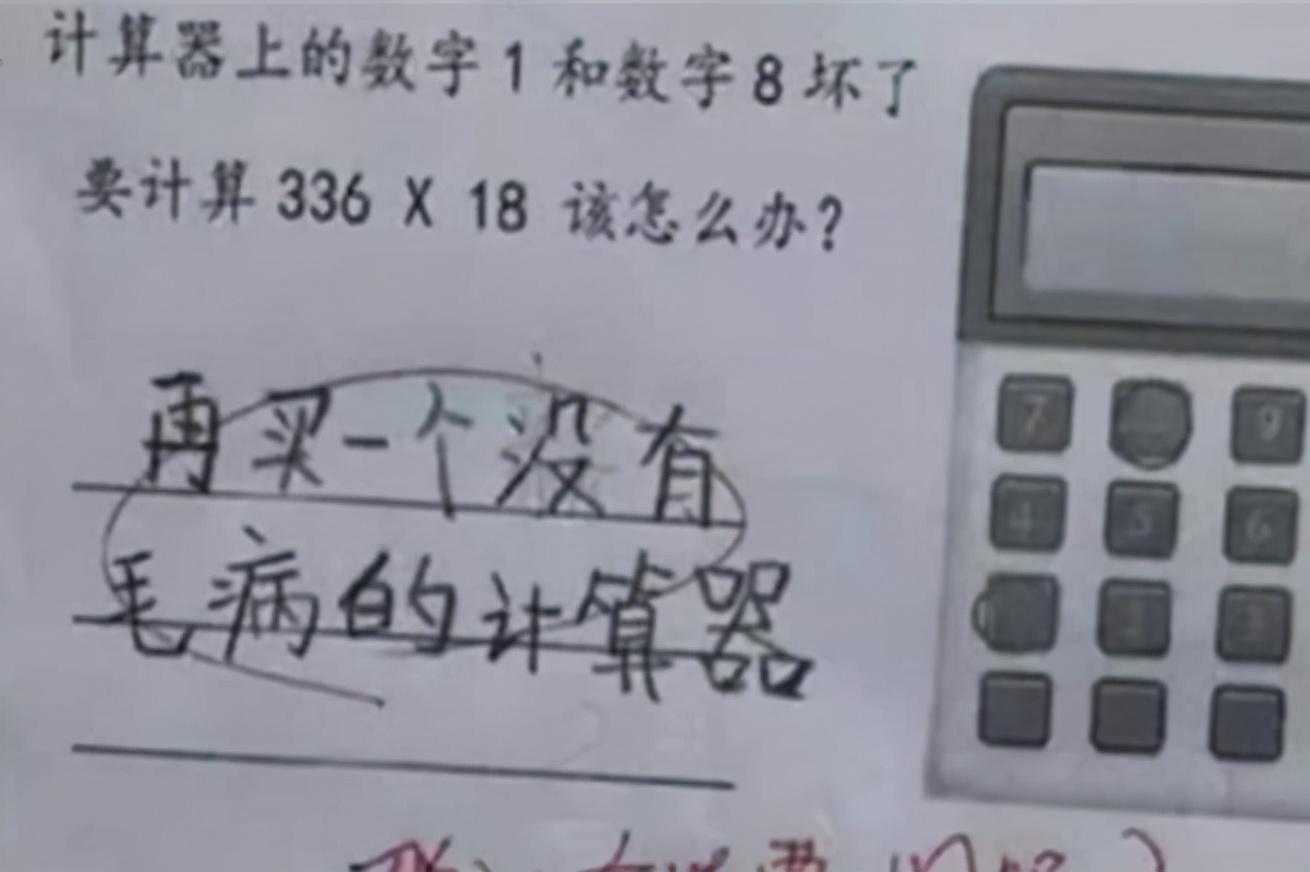 计算器上的数字1和数字8坏了
要计算336 X 18 该怎么办?
再买一个没有
毛病的计算器
7 9
4 5 6